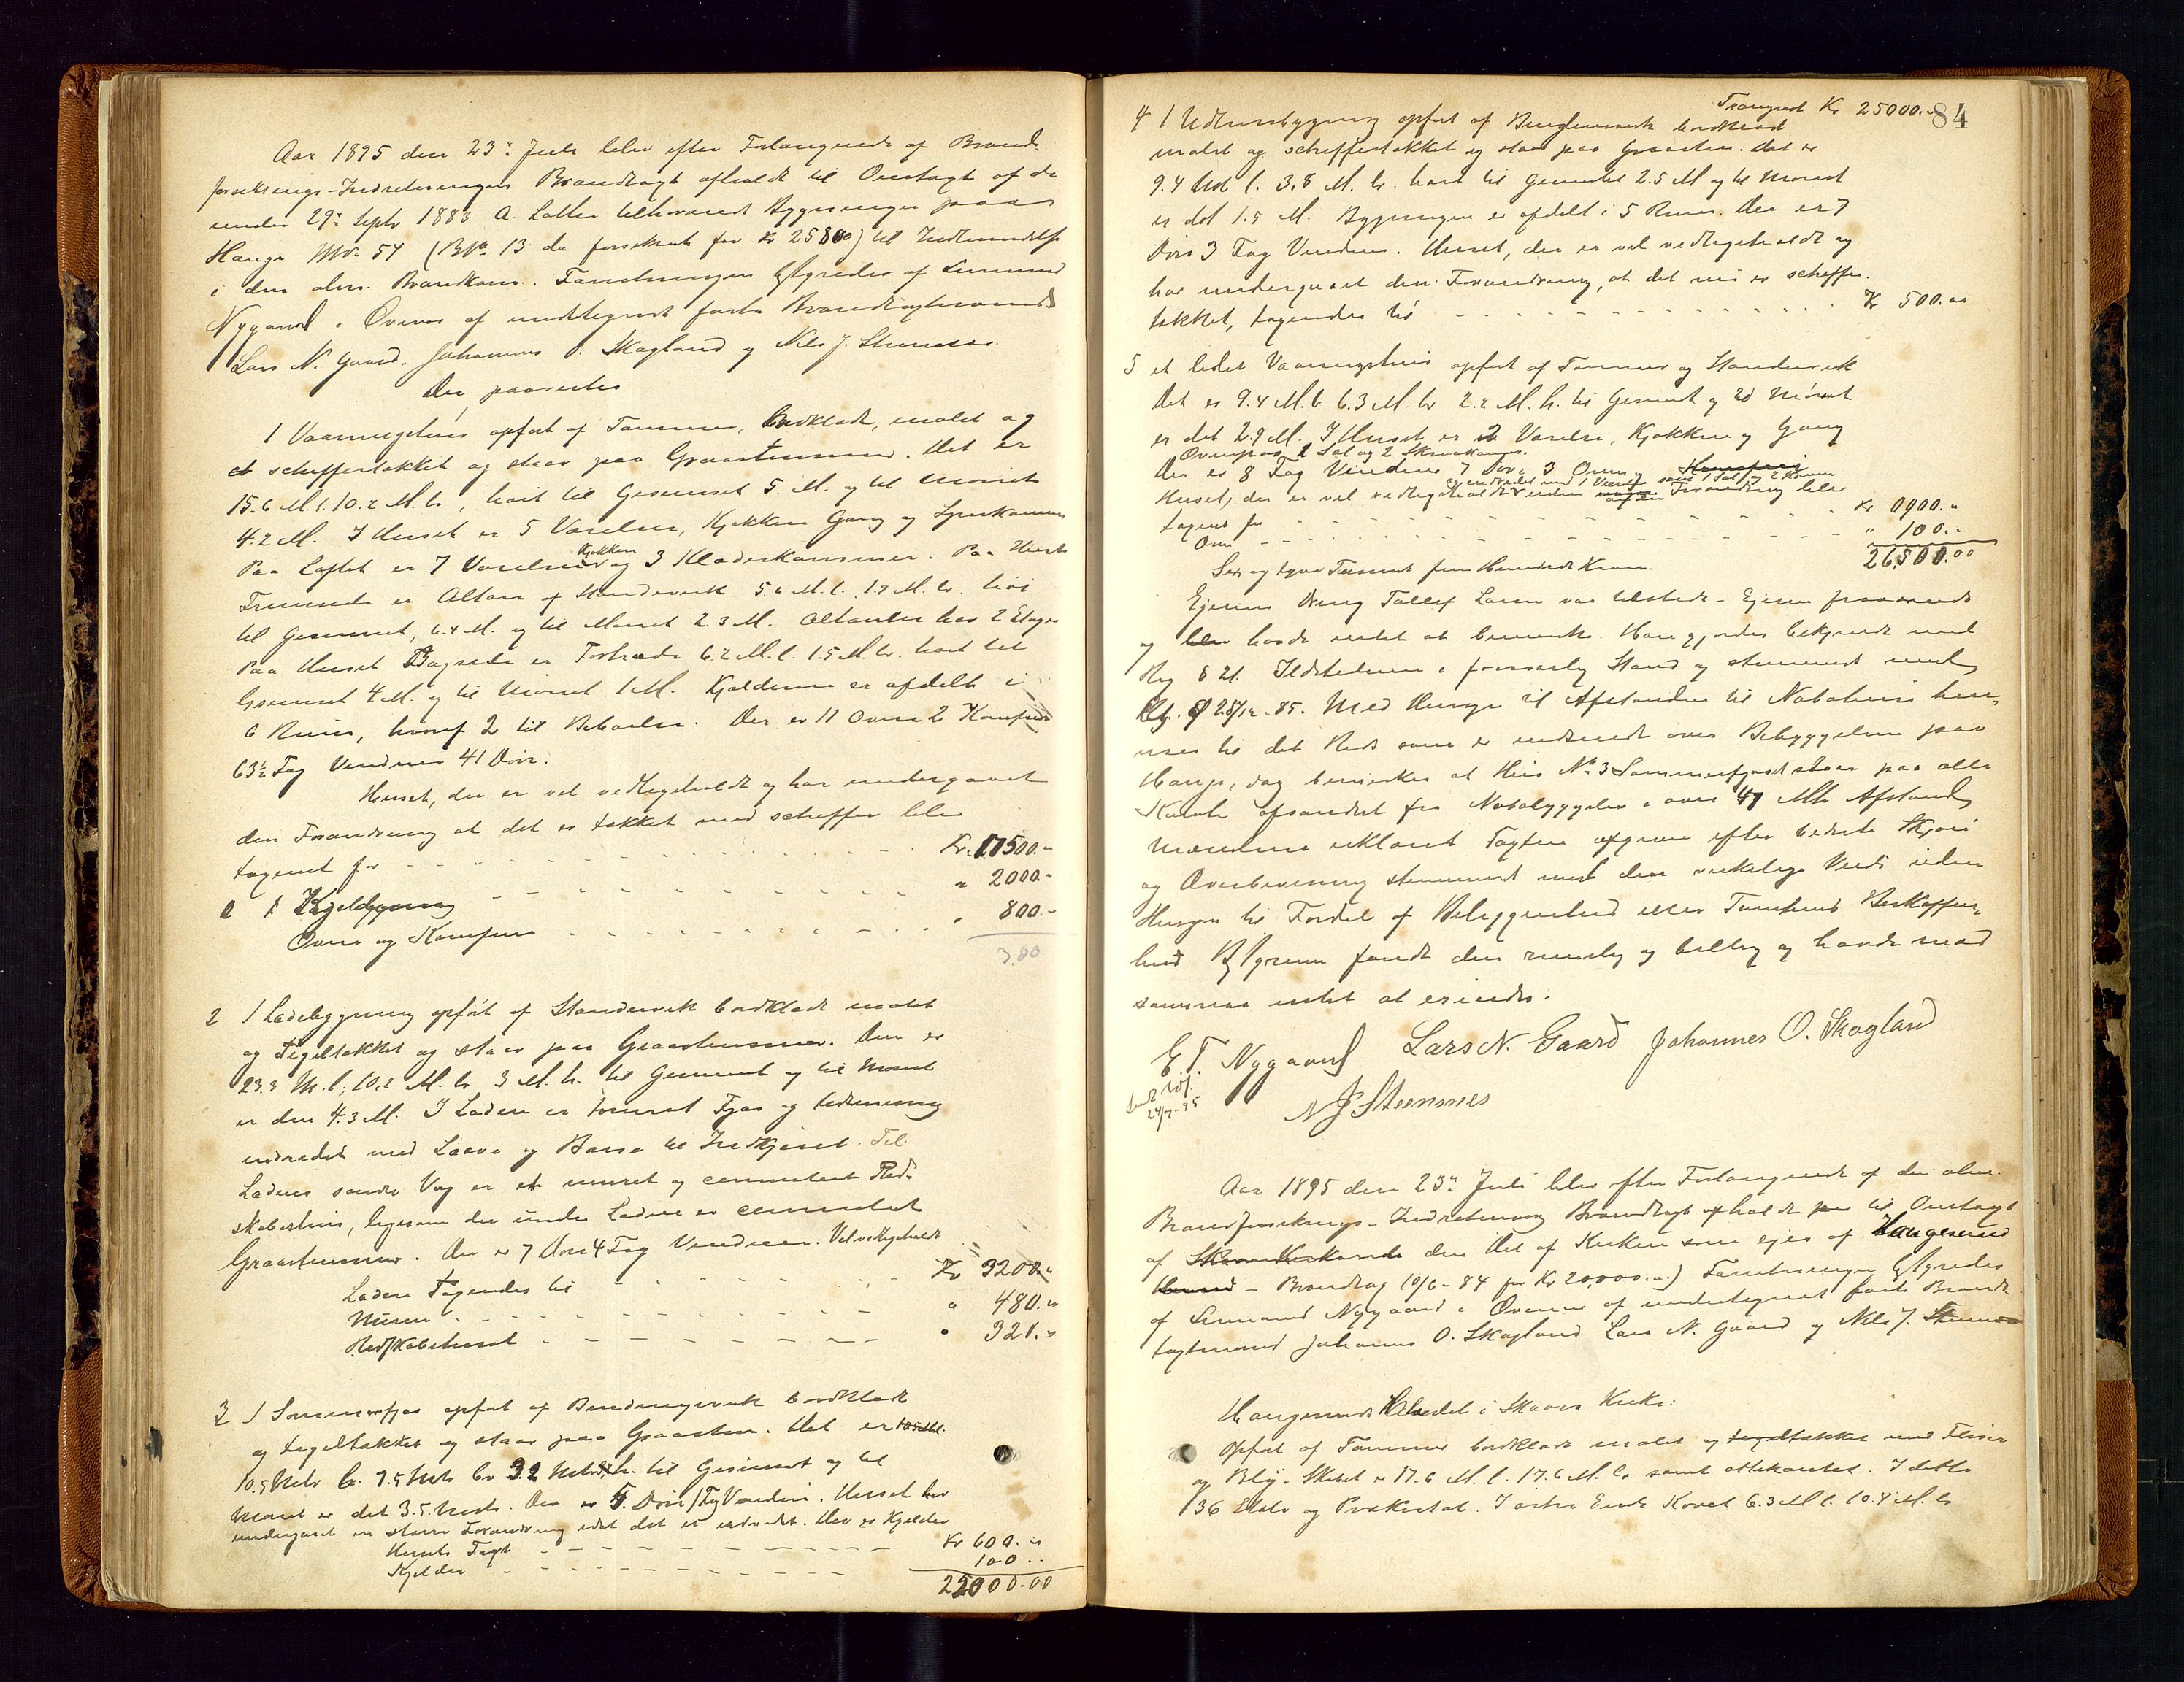 Aar 1895 den 23de Juli blev efter Forlangende af Brand-
forsikrings-Indretningen Brandtagt afholdt til Omtagt af de
under 29de Septr 1883 A. Lothe tilhørende Bygninger paa
Hauge MNo 54 (BNo 13 da forsikret for Kr 25800) til Indlemmelse
i den alm. Brandkasse. Forretningen bestyredes af Lensmand
Nygaard i Overvær af undertegnede faste Brandtagtmænd
Lars N. Gaard, Johannes O. Skogland og Nils J. Stumnes.
Der paavistes
1 Vaaningshus opført af Tømmer, bordklædt, malet og
skiffertækket og staar paa Graastensmur. Det er
15.6 M. l. 10.2 M. br, høit til Gesimset 5. M. og til Mønet
4.2 M. I Huset er 5 Værelser, Kjøkken Gang og Spisekammer
Paa Loftet er 7 Værelser Kjøkken og 3 Klædeskammer. Paa Husets
Fremside er Altan af Standerverk 5.6 M. l. 1.9 M. br. høi
til Gesimset, 6.4 M. og til Mønet 2.3 M. Altanen har 2 Etager
Paa Huset Bagside er Forstræde 6.2 M. l. 1.5 M. br. høit til
Gesimset 4 M. og til Mønet 1 M. Kjelderen er afdelt i
6 Rum, hvoraf 2 til Beboelse. Der er 11 Ovne 2 Komfur
63½ Fag Vinduer 41 Døre.
Huset, der er vel vedligeholdt og har undergaaet
den Forandring at det er tækket med schiffer blev
tagent for Kr. 17500.-
Kjeldgning " 2000.-
Ovne og Komfurer " 800.-
3.00
2 1 Ladebygning opført af Standerverk bordklædt malet
og tegeltækket og staar paa Graastensmur. Den er
23.3 M. l. 10.2 M. br 3 M. h. til Gesimset og til Mønet
er den 4.3 M. I Laden er tømret Fjøs og
indredet med Laave og Baase til Indkjørsel. Til
Ladens søndre Væg er et muret og cementeret Red-
skabshus, ligesom der under Laden er cementeret
Graastensmur. Der er 7 Døre 4 Fag Vinduer. Vel vedligeholdt
Laden tagendes til Kr 3200.-
Muren " 480.-
Redskabshuset " 320.-
3 1 Sommerfjøs opført af Bindingsverk bordklædt
og tegeltækket og staar paa Graasten. Det er
10.5 Metr l. 7.5 Metr br 3.2 Metr h. til Gesimset og til
Mønet er det 3.5 Metr. Der er 5 Døre 1 Fag Vinduer. Huset har
undergaaet en større Forandring idet det er indredet. Der er Kjelder
Husets Tagt Kr 600.-
Kjelder 100.-
25000.00
84
Transport Kr 25000.-
4 1 Udhusbygning opført af Bindingsverk bordklædt
malet og schiffertækket og staar paa Graasten. Det er
9.4 Met l. 3.8 M. br. høit til Gesimset 2.5 M og til Mønet
er det 1.5 M. Bygningen er afdelt i 5 Rum. Der er 7
Døre 3 Fag Vinduer. Huset, der er vel vedligeholdt og
har undergaaet den Forandring, at det nu er schiffer-
tækket, tagendes til Kr 500.00
5 et lidet Vaaningshus opført af Tømmer og Standerverk
Det er 9.4 M. l. 6.3 M. br 2.2 M. h. til Gesimset og til Mønet
er det 2.9 M. I Huset er 2 Værelser, Kjøkken og Gang
Ovenpaa 1 Sal og 2 Skraakammer.
Der er 8 Fag Vinduer 7 Døre 3 Ovne og Komfur
Huset, der er vel vedligeholdt uden Forandring blev
tagent for Kr 0900.-
Ovne " 100.-
Sex og tyve Tusinde fem Hundrede Kroner. 26,500.00
Ejerens Dreng Tollef Larsen var tilstede - Ejeren fraværende
og havde intet at bemerke. Han gjordes bekjendt med
Reg § 21. Ildstederne i forsvarlig Stand og stemmende med
Reg. af 28/12-85. Med Hensyn til Afstanden til Nabohuse hen-
vises til det Rids som er indsendt over Bebyggelsen paa
Hauge, dog bemerkes at Hus No 3 Sommerfjøset staar paa alle
Kanter afsondret fra Nabobyggeler i over 47 Mtr Afstand
Mændene erklæret Tagten afgiven efter bedste Skjøn
og Overbevisning stemmende med den virkelige Verdi uden
Hensyn til Fordel af Beliggenhed eller Tomtens Beskaffen-
hed Bestyreren fandt den rimelig og billig og havde mod
samme intet at erindre.
E. T. Nygaard Lars N. Gaard Johannes O. Skogland
N J Stumnes
24/7-95
Aar 1895 den 23de Juli blev efter Forlangende af den alm.
Brandforsikrings-Indretning Brandtagt afholdt til Omtagt
af Skaare Kirke den Del af Kirken som ejes af Haugesund
- Brandtag 10/6-84 for Kr 20,000.00) Forretningen bestyredes
af Lensmand Nygaard i Overvær af undertegnede faste Brand-
tagtmænd Johannes O. Skogland Lars N. Gaard og Nils J. Stumnes
Haugesunds Halvdel i Skaare Kirke:
Opført af Tømmer bordklædt malet og tegeltækket med Fliser
og Bly. Skibet er 17.6 M. l. 17.6 M. br samt ottekantet. I dette
136 Stole og Prækestol. I østre Ende Koret 6.3 M. l. 10.4 M. br